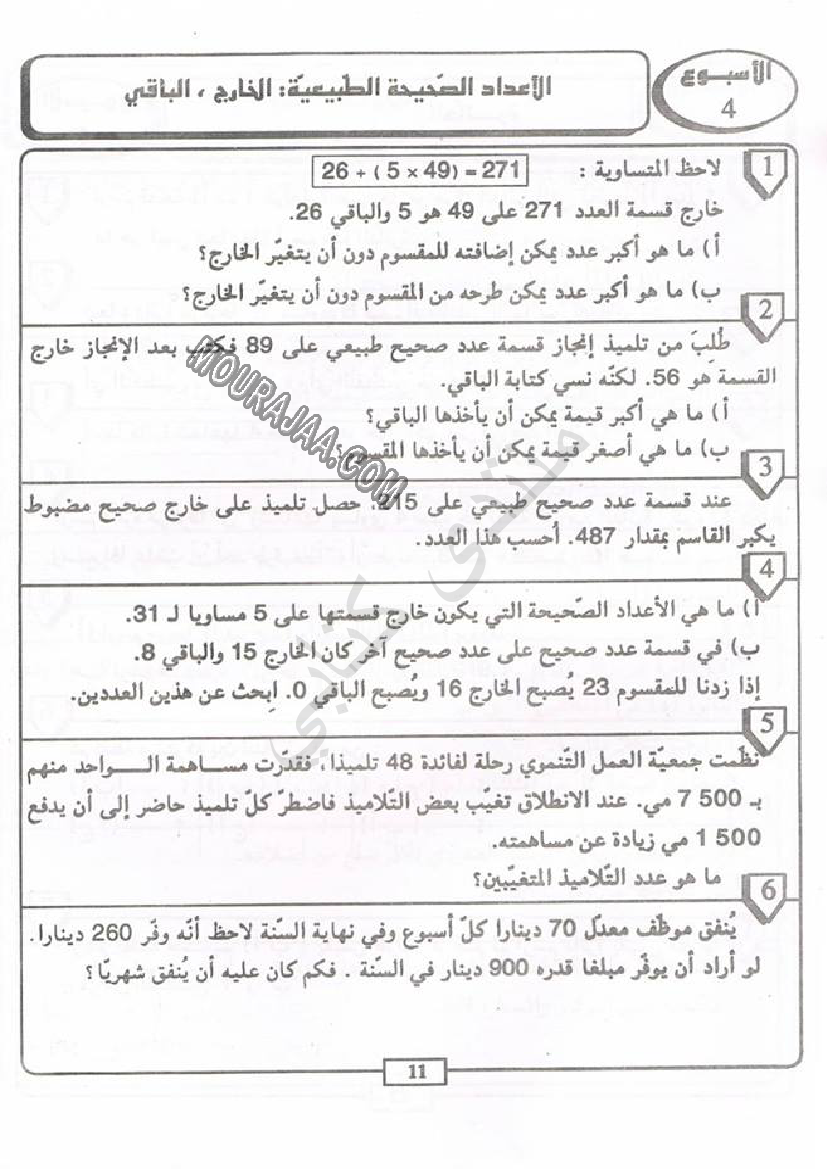 الأسبوع
4
الأعداد الصّحيحة الطّبيعيّة: الخارج ، الباقي
1
لاحظ المتساوية : 271 = (49 × 5 ) + 26
خارج قسمة العدد 271 على 49 هو 5 والباقي 26.
أ) ما هو أكبر عدد يمكن إضافته للمقسوم دون أن يتغيّر الخارج؟
ب) ما هو أكبر عدد يمكن طرحه من المقسوم دون أن يتغيّر الخارج؟
2
طُلِبَ من تلميذ إنجاز قسمة عدد صحيح طبيعي على 89 بعد الإنجاز خارج
القسمة هو 56. لكنّه نسي كتابة الباقي.
أ) ما هي أكبر قيمة يمكن أن يأخذها الباقي؟
ب) ما هي أصغر قيمة يمكن أن يأخذها المقسوم؟
3
عند قسمة عدد صحيح طبيعي على 215، حصل تلميذ على خارج صحيح مضبوط
يكبر القاسم بمقدار 487. أحسب هذا العدد.
4
أ) ما هي الأعداد الصّحيحة التي يكون خارج قسمتها على 5 مساويا لـ 31.
ب) في قسمة عدد صحيح على عدد صحيح آخر كان الخارج 15 والباقي 8.
إذا زدنا للمقسوم 23 يُصبح الخارج 16 ويُصبح الباقي 0. اِبحث عن هذين العددين.
5
نظّمت جمعيّة العمل التّنموي رحلة لفائدة 48 تلميذا، فقدّرت مساهمة الواحد منهم
بـ 500 7 مي. عند الانطلاق تغيّب بعض التّلاميذ فاضطرّ كلّ تلميذ حاضر إلى أن يدفع
500 1 مي زيادة عن مساهمته.
ما هو عدد التّلاميذ المتغيّبين؟
6
يُنفق موظّف معدّل 70 دينارا كلّ أسبوع وفي نهاية السّنة لاحظ أنّه وفّر 260 دينارا.
لو أراد أن يوفّر مبلغا قدره 900 دينار في السّنة . فكم كان عليه أن يُنفق شهريّا؟
11
MOURAJAA.COM
منتدى كتابي